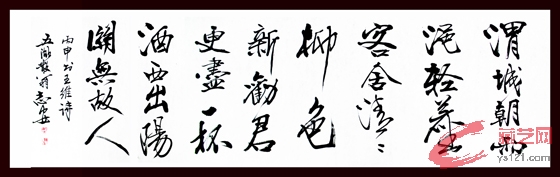 渭城朝雨
浥轻塵
客舍清々
柳色
新勸君
更盡一杯
酒西出陽
關無故人
丙申书王維诗
藏艺网
ys121.com